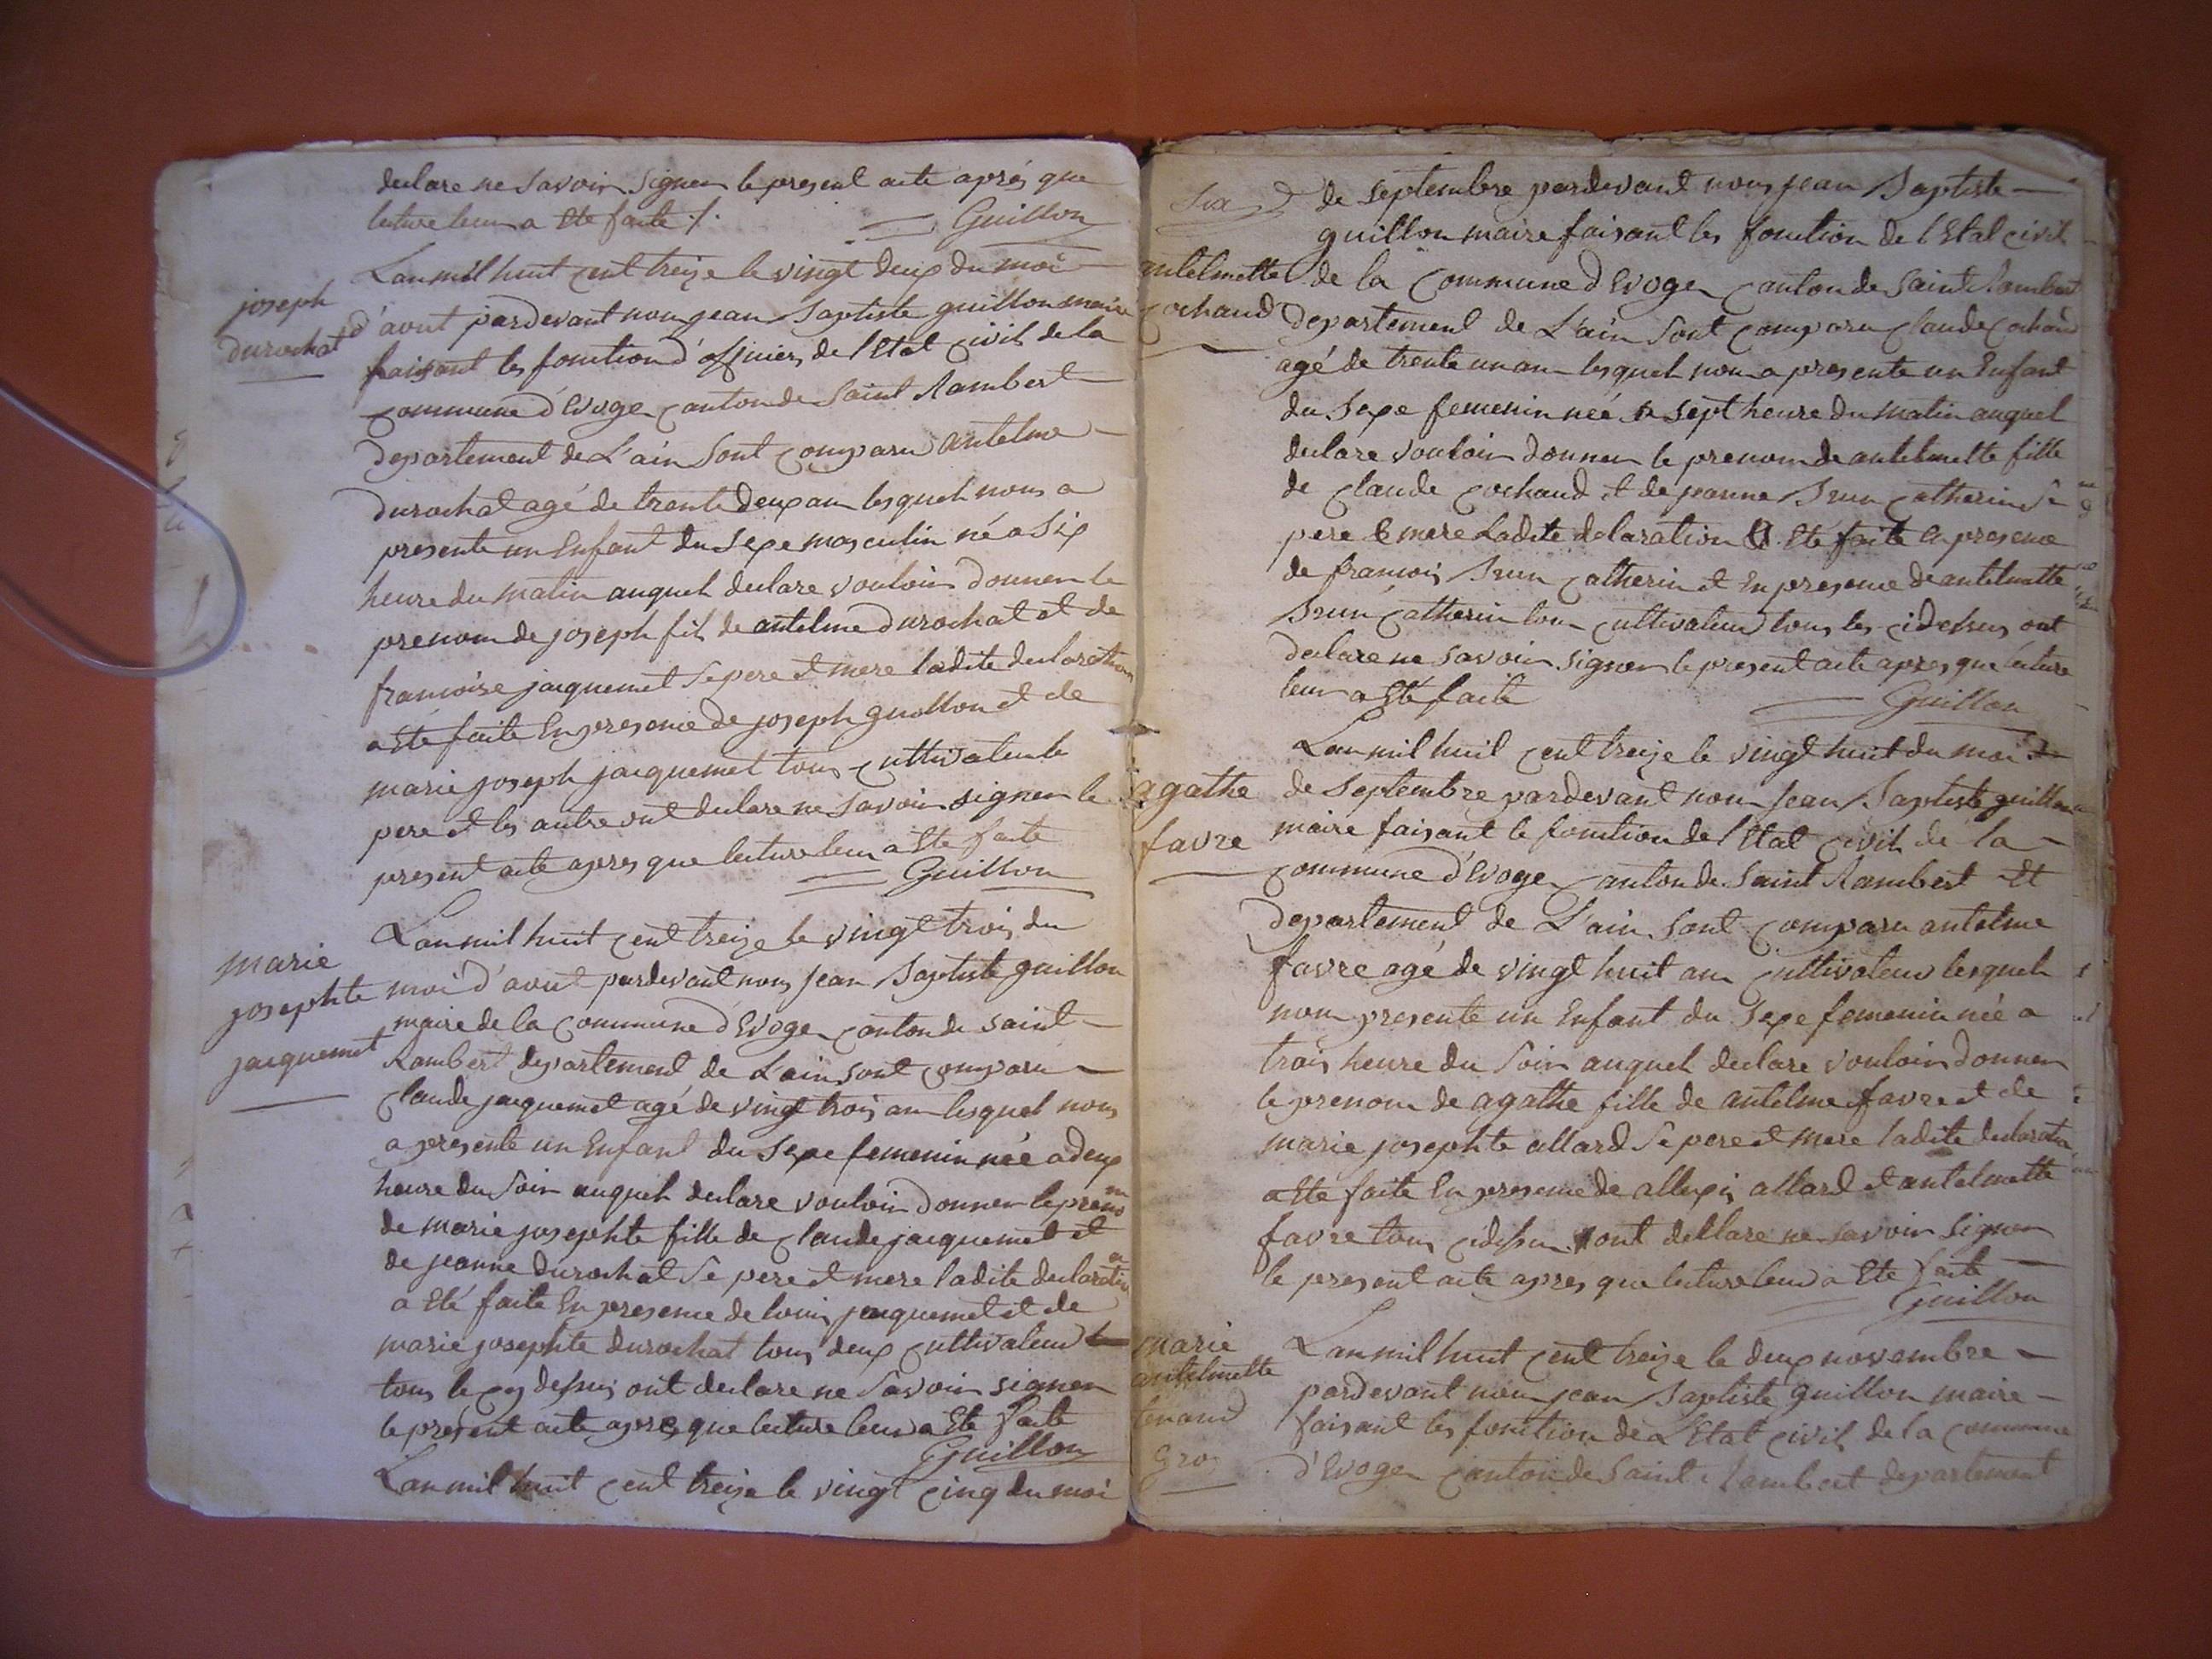 declare ne savoir signer le present acte aprés que
lecture leur a ete faite ./.
Guillon
joseph
durochat
Lan mil huit cent treize le vingt deux du moi
d'aout pardevant nous jean Baptiste guillon maire
faisant les fonction d'officier de l'Etat civil de la
commune d'Evoge canton de Saint Rambert
departement de L'ain Sont comparu antelme
durochat agé de trente deux an lesquel nous a
presente un Enfant du Sexe masculin né a Six
heure du matin auquel declare vouloir donner le
prenom de joseph fils de antelme durochat et de
francoise jacquemet Se pere et mere ladite declaration
a Ete faite En presence de joseph guillon et de
marie joseph jacquemet tous cultivateur le
pere et les autre ont declare ne savoir signer le
present acte apres que lecture leur a Ete faite
Guillon
marie
josephte
jacquemet
Lan mil huit cent treize le vingt trois du
moi d'aout pardevant nous jean Baptiste guillon
maire de la commune d'Evoge canton de saint
Rambert departement de L'ain sont comparu
claude jacquemet agé de vingt trois an lesquel nous
a presente un Enfant du Sexe femenin née a deux
heure du Soir auquel declare vouloir donner le prenom
de marie josephte fille de claude jacquemet et
de jeanne durochat Se pere et mere ladite declaration
a Eté faite En presence de louis jacquemet et de
marie josephte durochat tous deux cultivateur
tous le cy dessus ont declare ne savoir signer
le present acte apres que lecture leur a Ete faite
Guillon
Lan mil huit cent treize le vingt cinq du moi
de septembre pardevant nous jean Baptiste
guillon maire faisant les fonction de l'Etat civil
antelmette
cochaud
de la commune d'Evoge canton de Saint Rambert
departement de L'ain Sont comparu claude cochaud
agé de trente un an lesquel nous a presente un Enfant
du Sexe femenin née a sept heure du matin auquel
declare vouloir donner le prenom de antelmette fille
de claude cochaud et de jeanne Brun catherin Se
pere & mere Ladite delaration a Eté faite En presence
de francois Brun catherin et En presence de antelmette
Brun catherin tous cultivateur tous les cidessus ont
declare ne savoir signer le present acte apres que lecture
leur a Eté faite
Guillon
agathe
favre
Lan mil huit cent treize le vingt huit du moi
de septembre pardevant nous jean Baptiste guillon
maire faisant le fonction de l'Etat civil de la
commune d'Evoge canton de Saint Rambert et
departement de L'ain sont comparu antelme
favre agé de vingt huit an cultivateur lesquel
nous presente un Enfant du Sexe femenin née a
trois heure du Soir auquel declare vouloir donner
le prenom de agathe fille de antelme favre et de
marie josephte allard Se pere et mere ladite declaration
a Ete faite En presence de allexis allard et antelmette
favre tous cidessus ont dellare ne savoir signer
le present acte apres que lecture leur a Ete faite
Guillon
marie
antelmette
tenand
gros
Lan mil huit cent treize le deux novembre
pardevant nous jean Baptiste guillon maire
faisant les fonction de L'Etat civil de la commune
d'Evoge canton de Saint Rambert departement